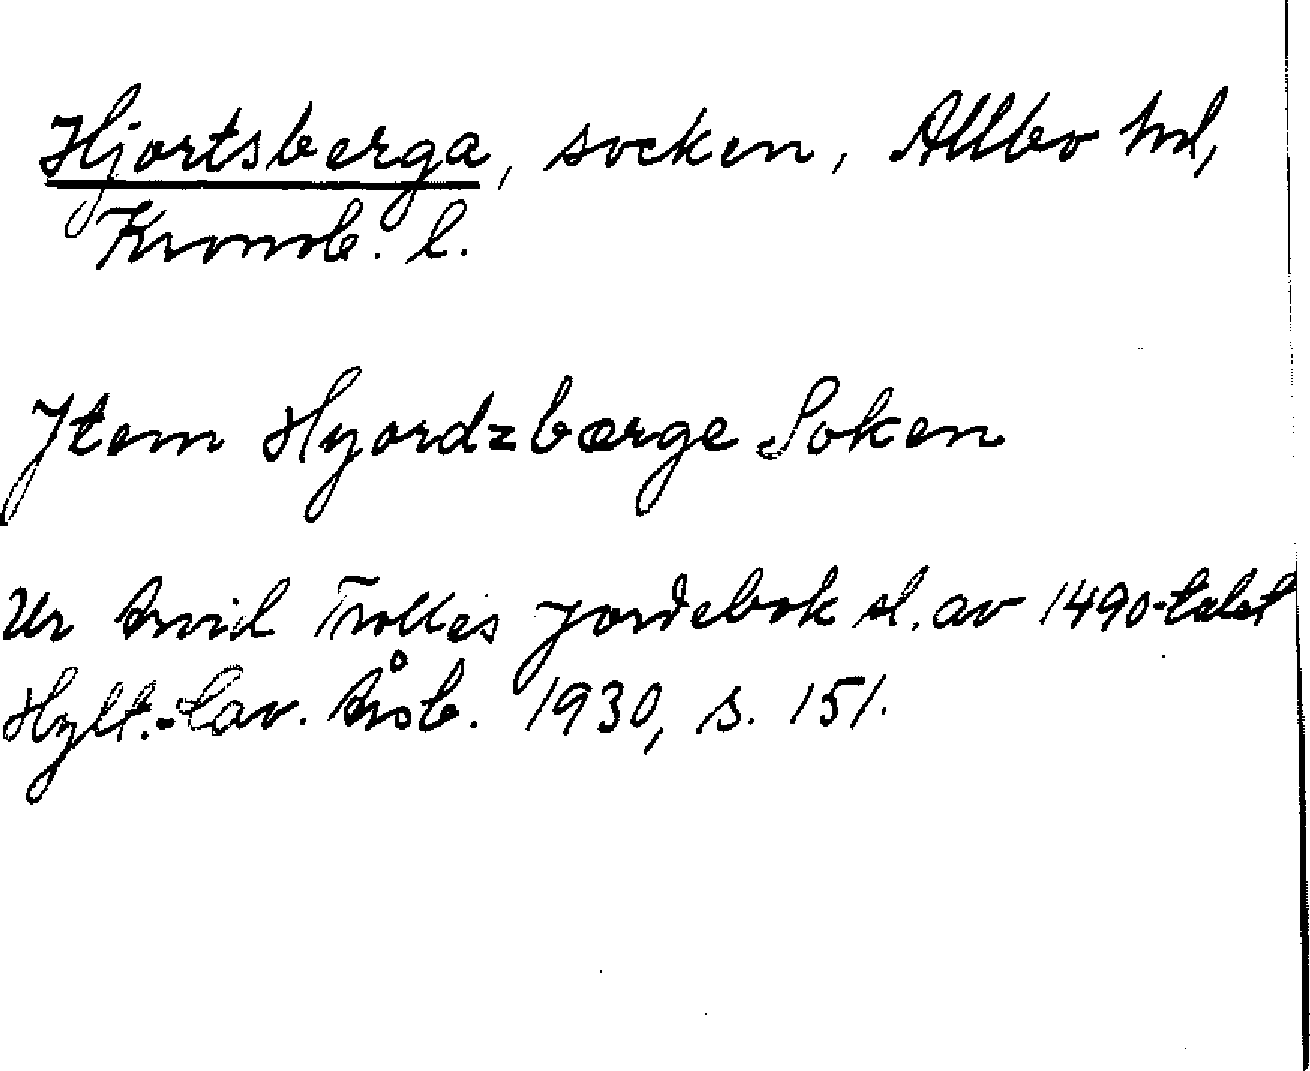 Hjortsberga, socken, Allbo hd,
Kronob. l.
Item Hyordzbærge Soken
Ur Arvid Trolles jordebok sl. av 1490-talet
Hylt.-Cav. Årsb. 1930, s. 151.